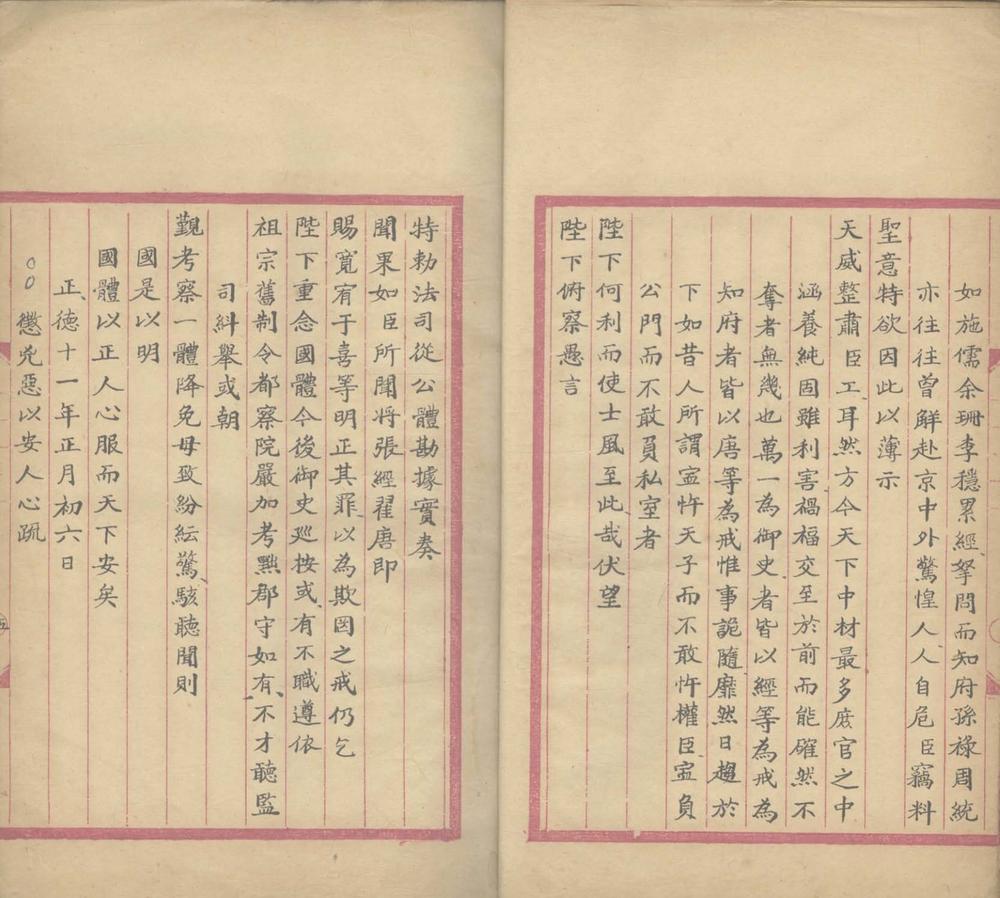 如施儒余珊李穩累經拏問而知府孫祿周統
亦往往曾觧赴京中外驚惶人人自危臣竊料
聖意特欲因此以薄示
天威整肅臣工耳然方今天下中材最多庶官之中
涵養純固雖利害禍福交至於前而能確然不
奪者無幾也萬一為御史者皆以經等為戒為
知府者皆以唐等為戒惟事詭隨靡然日趨於
下如昔人所謂寍忤天子而不敢忤權臣寍負
公門而不敢負私室者
陛下何利而使士風至此哉伏望
陛下俯察愚言
特勑法司從公體勘據實奏
聞果如臣所聞將張經翟唐即
賜寬宥于喜等明正其罪以為欺罔之戒仍乞
陛下重念國體今後御史廵按或有不職遵依
祖宗舊制令都察院嚴加考㸃郡守如有不才聽監
司糾舉或朝
覲考察一體降免毋致紛紜驚駭聽聞則
國是以明
國體以正人心服而天下安矣
正德十一年正月初六日
○○懲兇惡以安人心疏
五